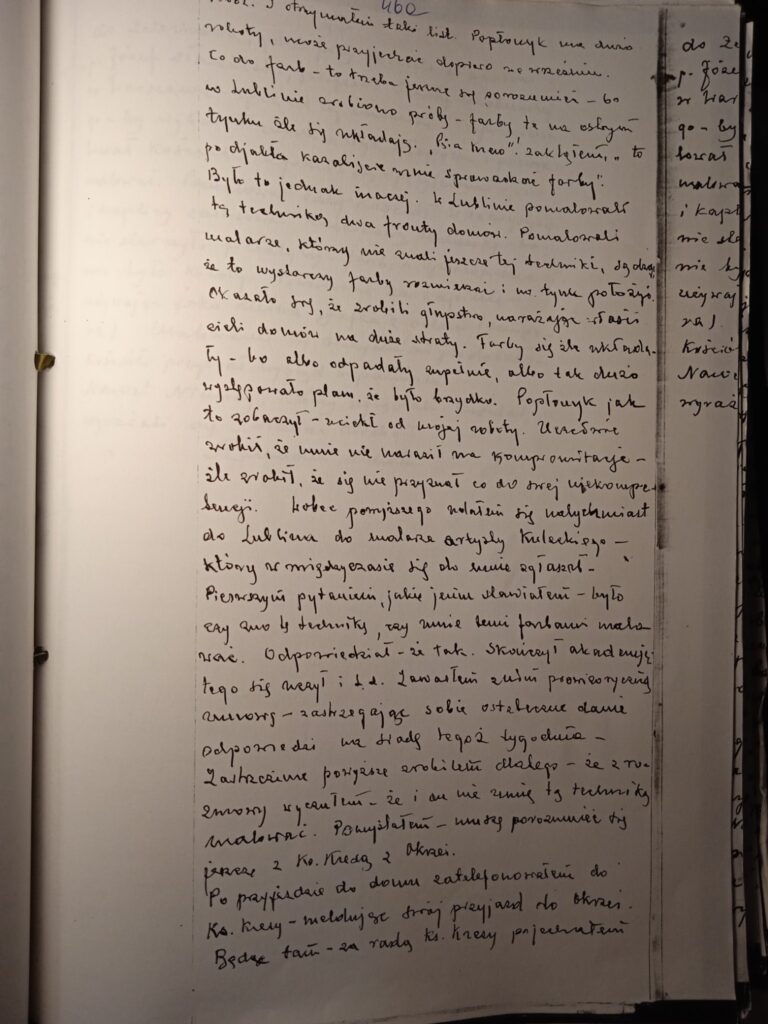 460
I otrzymałem taki list. Popłonyk ma dużo
roboty, może przyjechać dopiero we wrześniu.
Co do farb – to trzeba jeszcze się porozumieć – bo
w Lublinie zrobiono próby – farby te na ostrym
tynku źle się wkładają. „Psia krew"! zakląłem, „to
po djabła kazaliście mnie sprowadzać farby".
Było to jednak inaczej. W Lublinie pomalowali
tą techniką dwa fronty domów. Pomalowali
malarze, którzy nie znali jeszcze tej techniki, sądząc,
że to wystarczy farby rozmieszać i na tynk położyć.
Okazało się, że zrobili głupstwo, narażając właści
cieli domów na duże straty. Farby się źle wkłada-
ły – bo albo odpadały zupełnie, albo tak dużo
występowało plam, że było brzydko. Popłonyk jak
to zobaczył – uciekł od mojej roboty. Uczciwie
zrobił, że mnie nie naraził na kompromitację –
źle zrobił, że się nie przyznał co do swej niekompe-
tencji. Wobec powyższego udałem się natychmiast
do Lublina do malarza artysty Kuleckiego –
który w międzyczasie się do mnie zgłaszał –
Pierwszym pytaniem, jakie jemu stawiałem – było
czy zna tę technikę, czy umie temi farbami malo
wać. Odpowiedział – że tak. Skończył akademję,
tego się uczył i t.d. Zawarłem z nim prowizoryczną
umowę – zastrzegając sobie ostateczne danie
odpowiedzi na środę tegoż tygodnia –
Zastrzeżenie powyższe zrobiłem dlatego – że z ro-
zmowy wyczułem – że i on nie umie tą techniką
malować. Pomyślałem – muszę porozumieć się
jeszcze z Ks. Kredą z Okrzei.
Po przyjeździe do domu zatelefonowałem do
Ks. Kresy – meldując swój przyjazd do Okrzei.
Będąc tam – za radą Ks. Kresy pojechałem
do Że
p. Józe
w War
go – by
ował
malowa
i kapl
nie
nie
używaj
Kośció
Nawe
wyraź